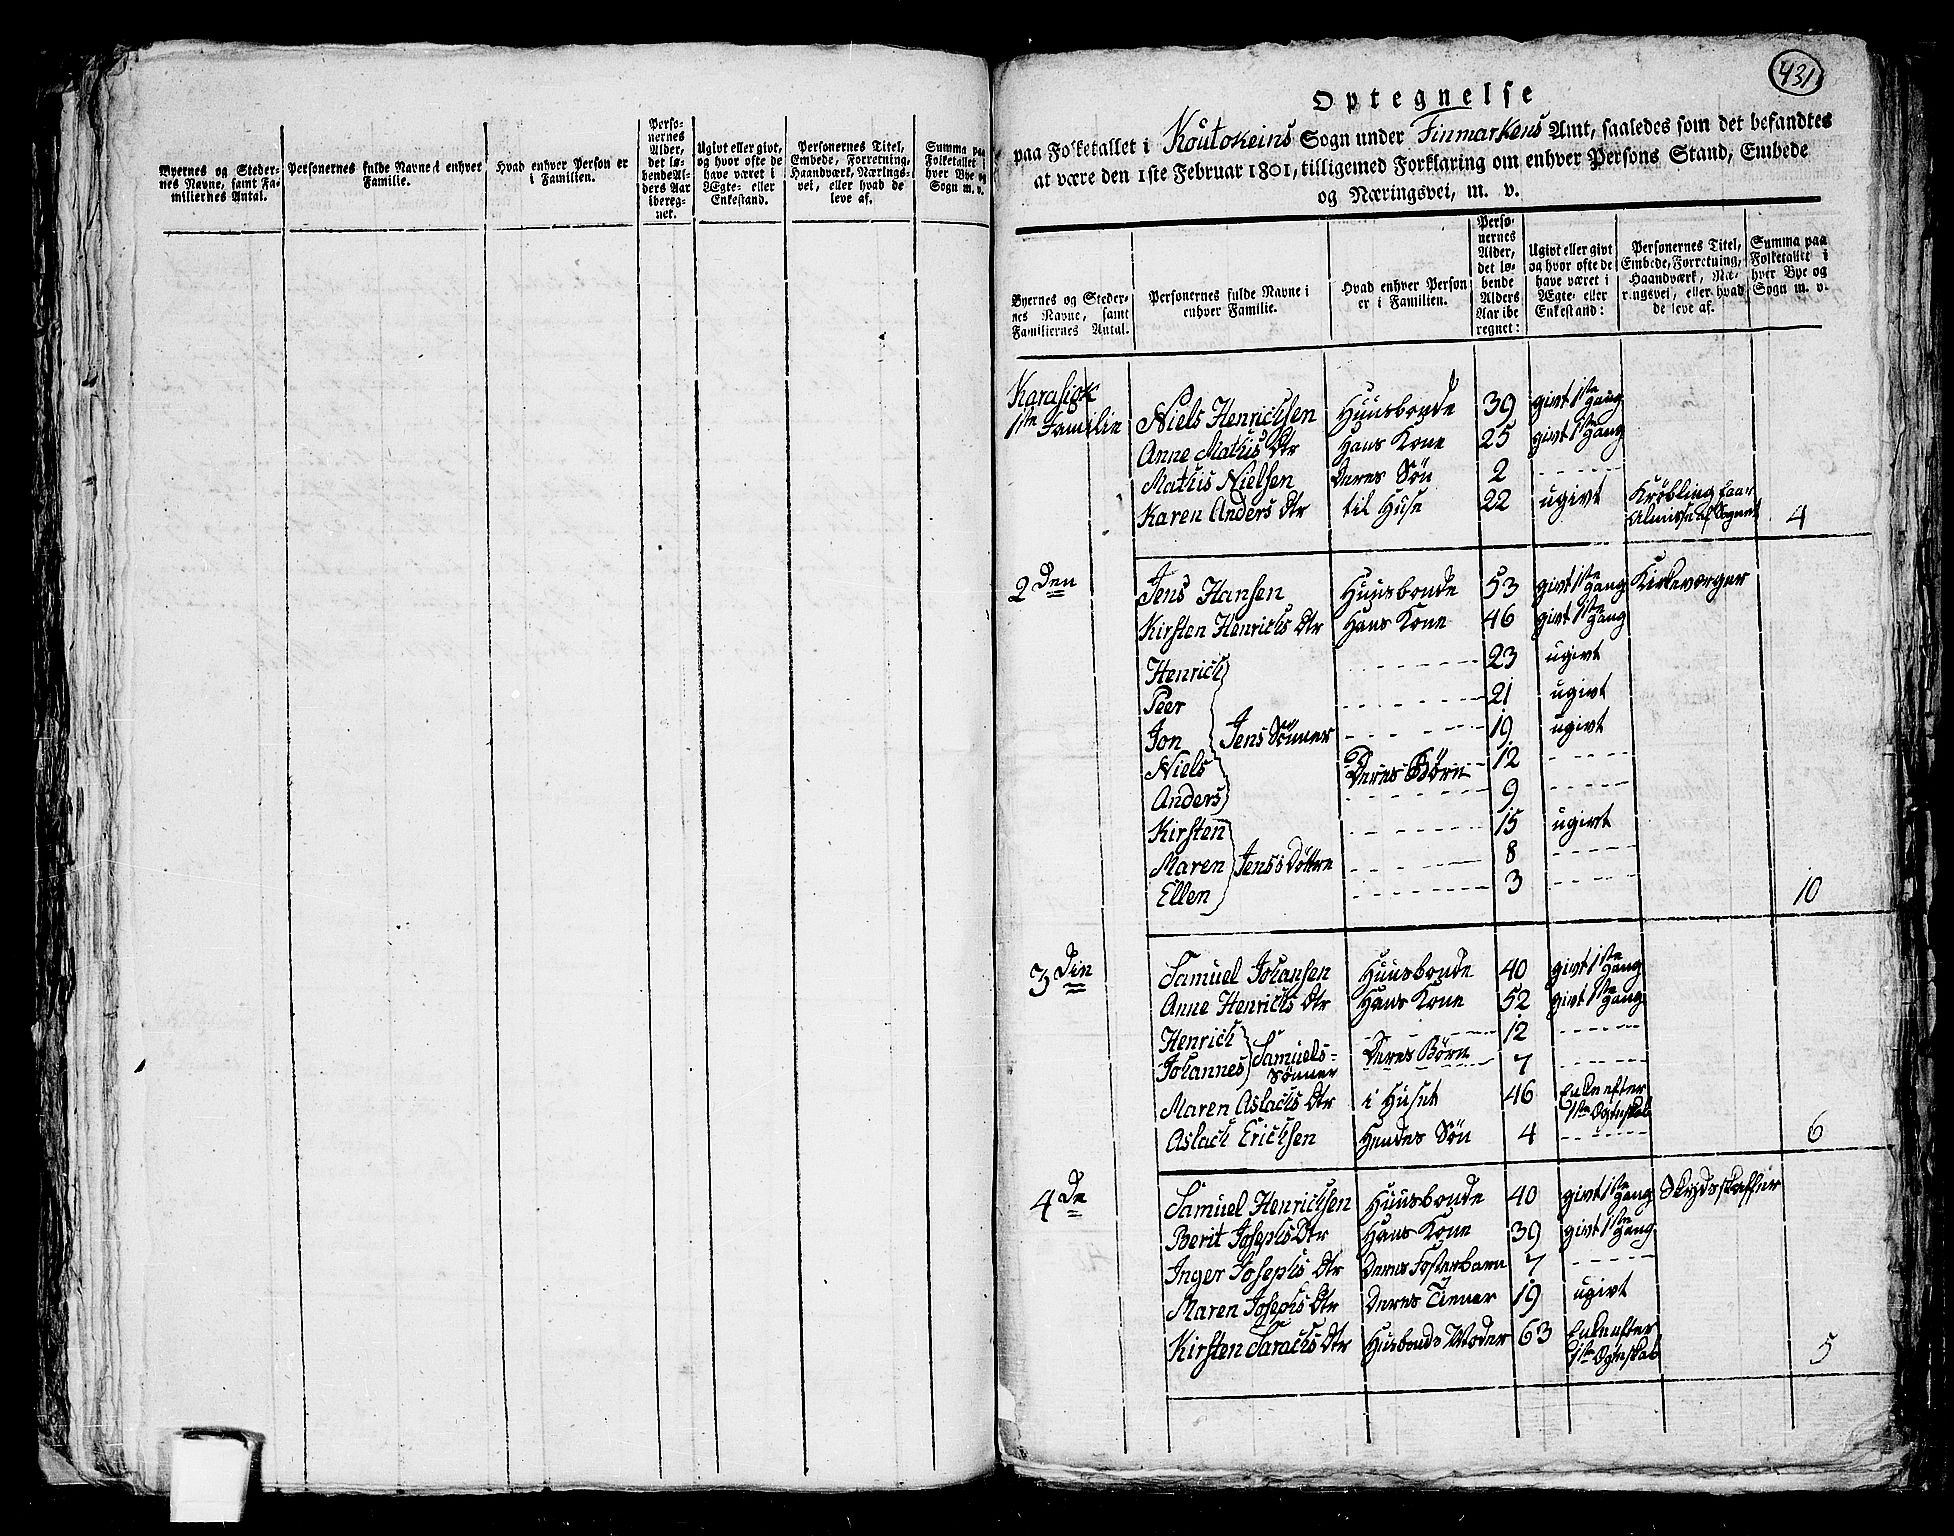 Byernes og Steder-
nes Navne, samt Fa-
miliernes Antal.
Personernes fulde Navne i enhver
Familie.
Hvad enhver Person er
i Familien.
Perso-
nernes
Alder,
det lø-
bende Al-
ders Aar
iberegnet.
Ugivt eller givt,
og hvor ofte de
have været i
Ægte- eller
Enkestand.
Personernes Titel,
Embede, Forretning,
Haandværk, Nærings-
vei, eller hvad de
leve af.
Summa paa
Folketallet i
hver Bye og
Sogn m. v.
431
Optegnelse
paa Folketallet i Koutokeins Sogn under Finmarkens Amt, saaledes som det befandtes
at være den 1ste Februar 1801, tilligemed Forklaring om enhver Persons Stand, Embede
og Næringsvei, m. v.
Byernes og Steder-
nes Navne, samt
Familiernes Antal.
Personernes fulde Navne i
enhver Familie.
Hvad enhver Person
er i Familien.
Perso-
nernes
Alder,
det lø-
bende
Alders
Aar ibe
regnet:
Ugivt eller givt
og hvor ofte de
have været i
Ægte- eller
Enkestand:
Personernes Titel,
Embede, Forretning,
Haandværk, Næ-
ringsvei, eller hvad
de leve af.
Summa paa
Folketallet i
hver Bye og
Sogn m. v.
Karasiok
1ste Familie Niels Henrichsen Huusbonde 39 givt 1ste gang
Anne Mathis Dtr Hans Kone 25 givt 1ste gang
Mathis Nielsen Deres Søn 2
Karen Anders Dtr til Huse 22 ugivt Krøbling faar
Almisse af Sognet 4
2den Jens Hansen Huusbonde 53 givt 1ste gang Kirkeværger
Kirsten Henrichs Dtr Hans Kone 46 givt 1ste gang
Henrich 23 ugivt
Peer 21 ugivt
Jon Jens Sønner 19 ugivt
Niels Deres Børn 12
Anders 9
Kirsten 15 ugivt
Maren Jens's Døttre 8
Ellen 3 10
3din Samuel Johansen Huusbonde 40 givt 1ste gang
Anne Henrichs Dtr Hans Kone 52 givt 1ste gang
Henrich 12
Johannes Samuels-
Sønner Deres Børn 7
Maren Aslachs Dtr i Huset 46 Enke efter
1ste Ægteskab
Aslach Erichsen Hendes Søn 4 6
4de Samuel Henrichsen Huusbonde 40 givt 1ste gang Skydsskaffer
Berit Josephs Dtr Hans Kone 39 givt 1ste gang
Inger Josephs Dtr Deres Fosterbarn 7
Maren Josephs Dtr Deres Tiener 19 ugivt
Kirsten Sarachs Dtr Husbonds Moder 63 Enke efter
1ste Ægteskab 5